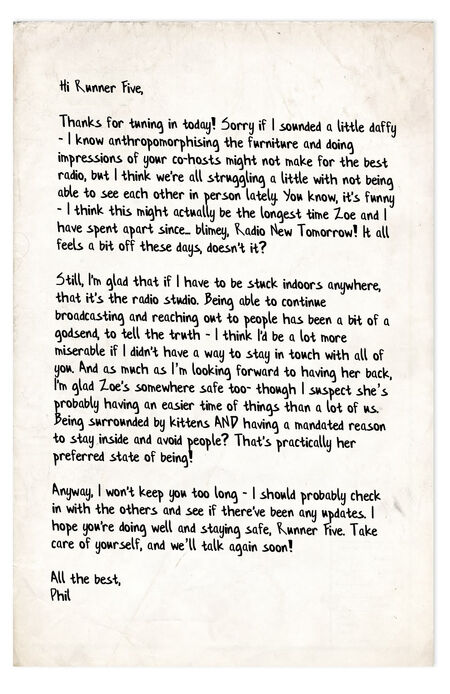 Hi Runner Five,
Thanks for tuning in today! Sorry if I sounded a little daffy
- I know anthropomorphising the furniture and doing
impressions of your co-hosts might not make for the best
radio, but I think we're all struggling a little with not being
able to see each other in person lately. You know, it's funny
- I think this might actually be the longest time Zoe and I
have spent apart since... blimey, Radio New Tomorrow! It all
feels a bit off these days, doesn't it?
Still, I'm glad that if I have to be stuck indoors anywhere,
that it's the radio studio. Being able to continue
broadcasting and reaching out to people has been a bit of a
godsend, to tell the truth - I think I'd be a lot more
miserable if I didn't have a way to stay in touch with all of
you. And as much as I'm looking forward to having her back,
I'm glad Zoe's somewhere safe too- though I suspect she's
probably having an easier time of things than a lot of us.
Being surrounded by kittens AND having a mandated reason
to stay inside and avoid people? That's practically her
preferred state of being!
Anyway, I won't keep you too long - I should probably check
in with the others and see if there've been any updates. I
hope you're doing well and staying safe, Runner Five. Take
care of yourself, and we'll talk again soon!
All the best,
Phil